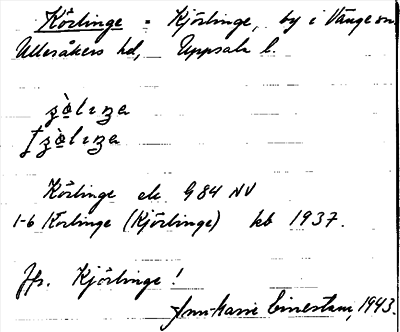 Körlinge = Kjörlinge, by i Vänge sn,
Ulleråkers hd, Uppsala l.
Körlinge ek G 84 NV
1-6 Körlinge (Kjörlinge) kb 1937.
Jfr. Kjörlinge!
Ann-Marie 1943.